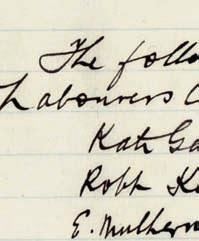 The follo
Labourers
Kate Ga
Robt K
E. Mulhern